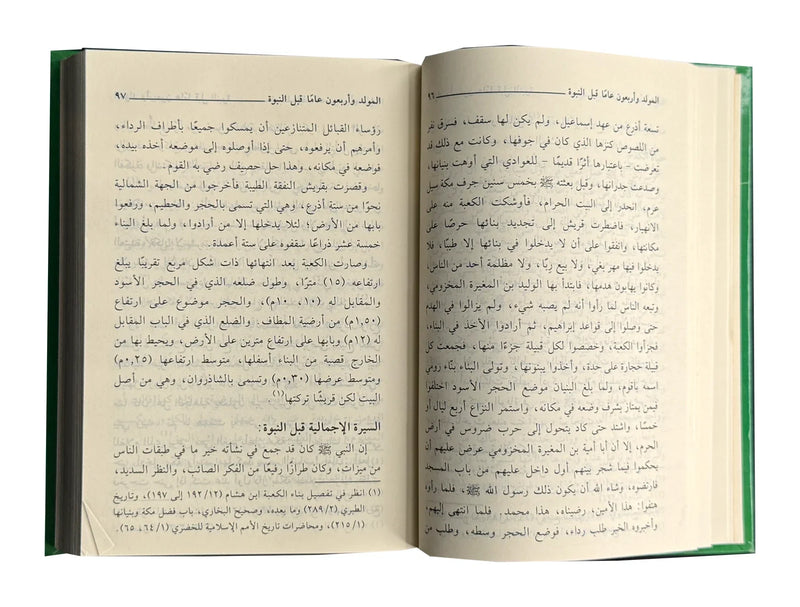 المولد وأربعون عامًا قبل النبوة ٩٦
تسعة أذرع من عهد إسماعيل، ولم يكن لها سقف، فسرق نفر
من اللصوص كنزها الذي كان في جوفها، وكانت مع ذلك قد
تعرضت - باعتبارها أثرًا قديمًا - للعوادي التي أوهت بنيانها،
وصدعت جدرانها، وقبل بعثته ﷺ بخمس سنين جرف مكة سيل
عرم، انحدر إلى البيت الحرام، فأوشكت الكعبة منه على
الانهيار، فاضطرت قريش إلى تجديد بنائها حرصًا على
مكانتها، واتفقوا على أن لا يدخلوا في بنائها إلا طيبًا، فلا
يدخلوا فيها مهر بغي، ولا بيع ربًا، ولا مظلمة أحد من الناس،
وكانوا يهابون هدمها، فابتدأ بها الوليد بن المغيرة المخزومي،
وتبعه الناس لما رأوا أنه لم يصبه شيء، ولم يزالوا في الهدم
حتى وصلوا إلى قواعد إبراهيم، ثم أرادوا الأخذ في البناء،
فجزأوا الكعبة، وخصصوا لكل قبيلة جزءًا منها، فجمعت كل
قبيلة حجارة على حدة، وأخذوا يبنونها، وتولى البناء بنّاء رومي
اسمه باقوم، ولما بلغ البنيان موضع الحجر الأسود اختلفوا
فيمن يمتاز بشرف وضعه في مكانه، واستمر النزاع أربع ليال أو
خمسًا، واشتد حتى كاد يتحول إلى حرب ضروس في أرض
الحرم، إلا أن أبا أمية بن المغيرة المخزومي عرض عليهم أن
يحكموا فيما شجر بينهم أول داخل عليهم من باب المسجد
فارتضوه، وشاء الله أن يكون ذلك رسول الله ﷺ، فلما رأوه
هتفوا: هذا الأمين، رضيناه، هذا محمد. فلما انتهى إليهم،
وأخبروه الخبر طلب رداء، فوضع الحجر وسطه، وطلب من
المولد وأربعون عامًا قبل النبوة ٩٧
رؤساء القبائل المتنازعين أن يمسكوا جميعًا بأطراف الرداء،
وأمرهم أن يرفعوه، حتى إذا أوصلوه إلى موضعه أخذه بيده،
فوضعه في مكانه، وهذا حل حصيف رضي به القوم.
وقصرت بقريش النفقة الطيبة فأخرجوا من الجهة الشمالية
نحوًا من ستة أذرع، وهي التي تسمى بالحجر والحطيم، ورفعوا
بابها من الأرض؛ لئلا يدخلها إلا من أرادوا، ولما بلغ البناء
خمسة عشر ذراعًا سقفوه على ستة أعمدة.
وصارت الكعبة بعد انتهائها ذات شكل مربع تقريبًا يبلغ
ارتفاعه (١٥) مترًا، وطول ضلعه الذي في الحجر الأسود
والمقابل له (١٠، ١٠م)، والحجر موضوع على ارتفاع
(١,٥٠م) من أرضية المطاف. والضلع الذي في الباب المقابل
له (١٢م) وبابها على ارتفاع مترين على الأرض، ويحيط بها من
الخارج قصبة من البناء أسفلها، متوسط ارتفاعها (٠,٢٥م)
ومتوسط عرضها (٠,٣٠م) وتسمى بالشاذروان، وهي من أصل
البيت لكن قريشًا تركتها(١).
السيرة الإجمالية قبل النبوة:
إن النبي ﷺ كان قد جمع في نشأته خير ما في طبقات الناس
من ميزات، وكان طرازًا رفيعًا من الفكر الصائب، والنظر السديد،
(١) انظر في تفصيل بناء الكعبة ابن هشام (١٩٢/٢ إلى ١٩٧)، وتاريخ
الطبري (٢٨٩/٢) وما بعده، وصحيح البخاري، باب فضل مكة وبنيانها
(٢١٥/١)، ومحاضرات تاريخ الأمم الإسلامية للخضري (٦٤/١، ٦٥).